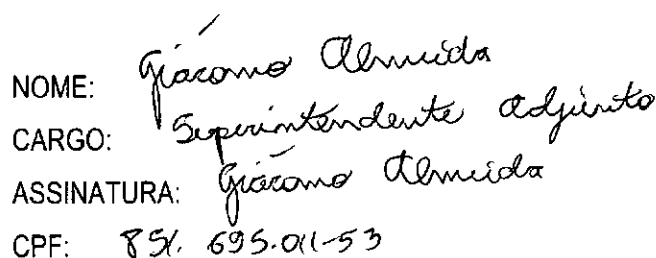 NOME: Giácomo Almeida
CARGO: Superintendente Adjunto
ASSINATURA: Giácomo Almeida
CPF: 851.695.011-53